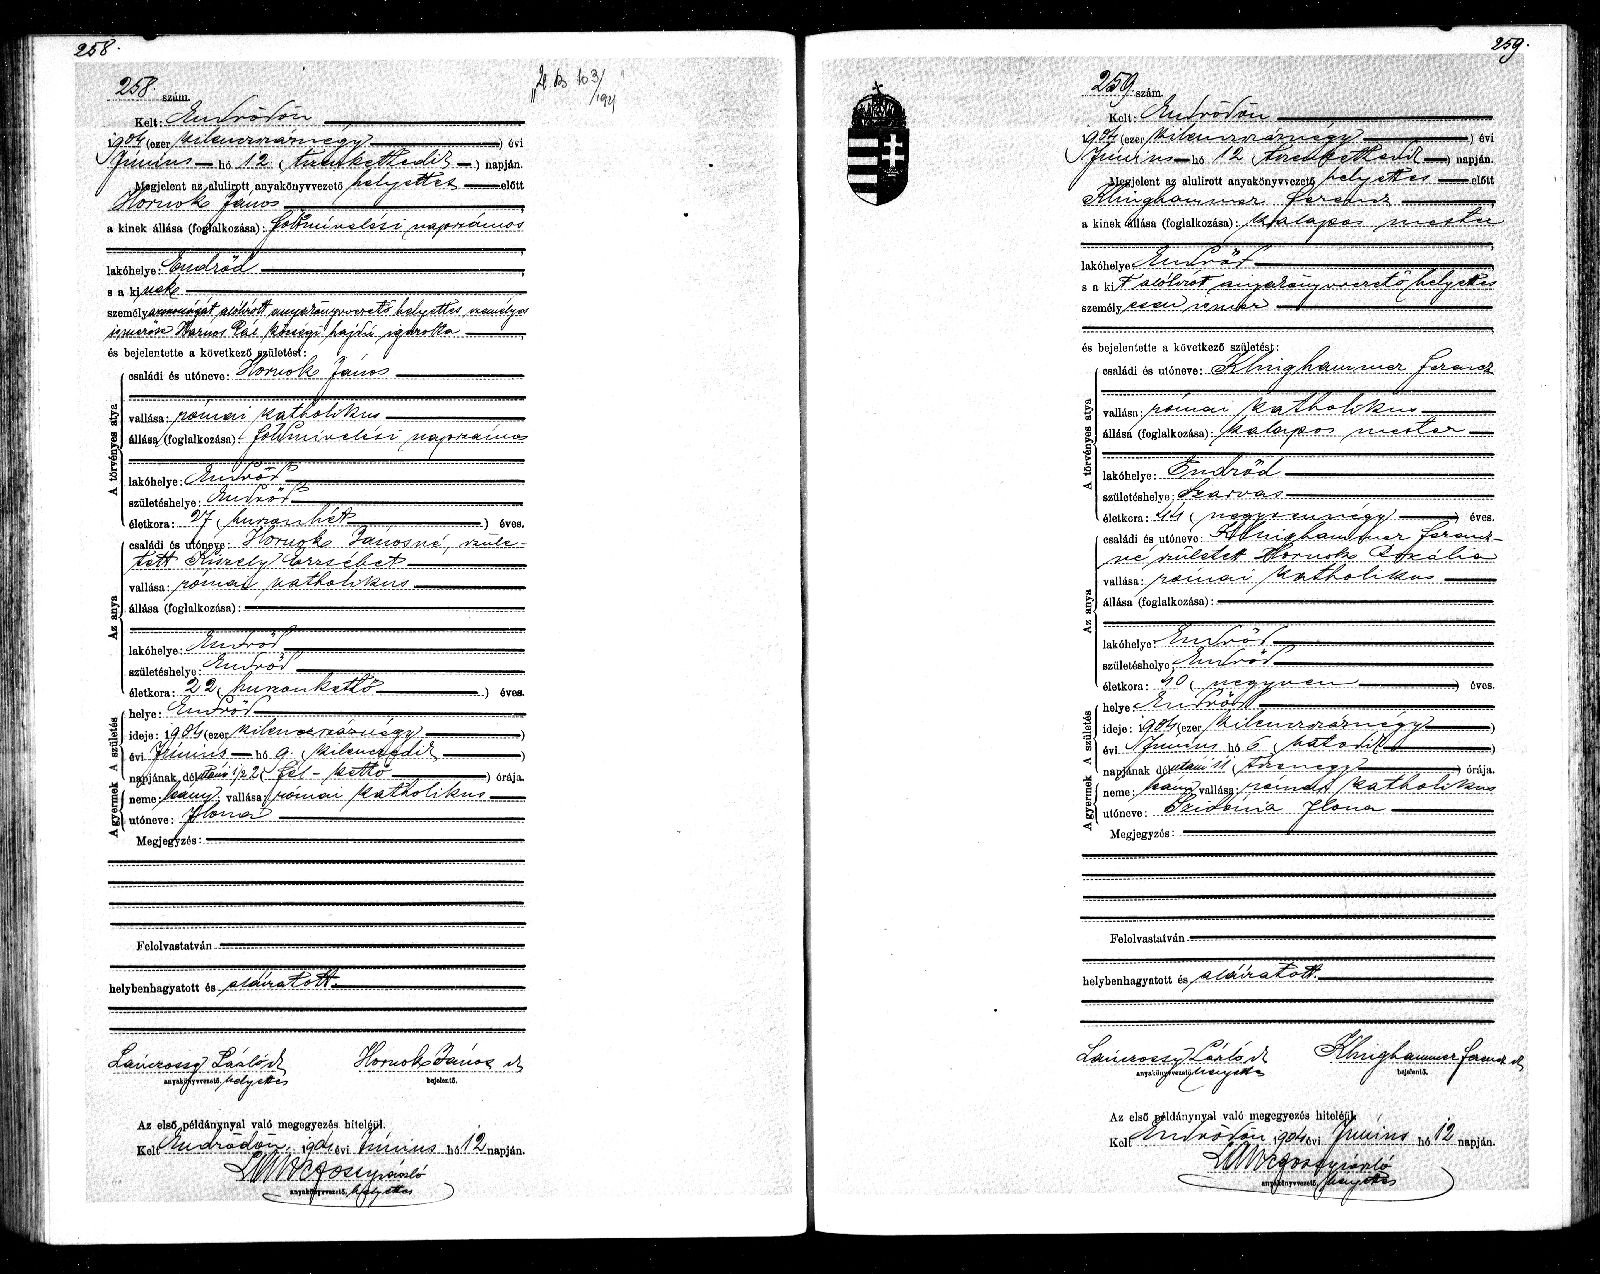 258.
258. szám.
Kelt: Endrődön
1904 (ezer kilenczszáznégy) évi
Június hó 12 (tizenkettedik) napján.
Megjelent az alulirott anyakönyvvezető helyettes előtt
Hornok János
a kinek állása (foglalkozása): földmívelési napszámos
lakóhelye: Endrőd
s a kinek
személyazonosságát, alólírott anyakönyvvezető helyettes személyes
ismerőse Pál községi hajdú igazolta
és bejelentette a következő születést:
A törvényes atya
családi és utóneve: Hornok János
vallása: római katholikus
állása (foglalkozása): földmívelési napszámos
lakóhelye: Endrőd
születéshelye: Endrőd
életkora: 27 (huszonhét) éves.
Az anya
családi és utóneve: Hornok Jánosné, szüle-
tett Kiszely Erzsébet
vallása: római katholikus
állása (foglalkozása):
lakóhelye: Endrőd
születéshelye: Endrőd
életkora: 22 (huszonkettő) éves.
A születés
helye: Endrőd
ideje: 1904 (ezer kilenczszáznégy)
évi Június hó 9 (kilenczedik)
napjának délután 1/2 2 (fél-kettő) órája.
A gyermek
neme: leány vallása: római katholikus
utóneve: Ilona
Megjegyzés:
Felolvastatván
helybenhagyatott és aláíratott.
László h Hornok János sk
anyakönyvvezető helyettes bejelentő.
Az első példánynyal való megegyezés hiteléül.
Kelt Endrődön, 1904 évi Június hó 12 napján.
László
anyakönyvvezető, helyettes
259.
259 szám.
Kelt: Endrődön
1904 (ezer kilenczszáznégy) évi
Június hó 12 (tizenkettedik) napján.
Megjelent az alulirott anyakönyvvezető helyettes előtt
Klinghammer Ferencz
a kinek állása (foglalkozása): kalapos mester
lakóhelye: Endrőd
s a kit alólírott anyakönyvvezető helyettes
személyesen ismer
és bejelentette a következő születést:
A törvényes atya
családi és utóneve: Klinghammer Ferencz
vallása: római katholikus
állása (foglalkozása): kalapos mester
lakóhelye: Endrőd
születéshelye: Szarvas
életkora: 44 (negyvennégy) éves.
Az anya
családi és utóneve: Klinghammer Ferencz-
né született Hornok Rozália
vallása: római katholikus
állása (foglalkozása):
lakóhelye: Endrőd
születéshelye: Endrőd
életkora: 40 (negyven) éves.
A születés
helye: Endrőd
ideje: 1904 (ezer kilenczszáznégy)
évi Június hó 6 (hatodik)
napjának délután órája.
A gyermek
neme: leány vallása: római katholikus
utóneve: Szidónia Ilona
Megjegyzés:
Felolvastatván
helybenhagyatott és aláíratott.
László h Klinghammer Ferencz sk
anyakönyvvezető helyettes bejelentő.
Az első példánynyal való megegyezés hiteléül.
Kelt Endrődön, 1904 évi Június hó 12 napján.
László
anyakönyvvezető, helyettes